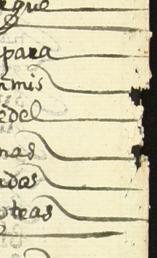 para
mis
edel
nas
das
oteas